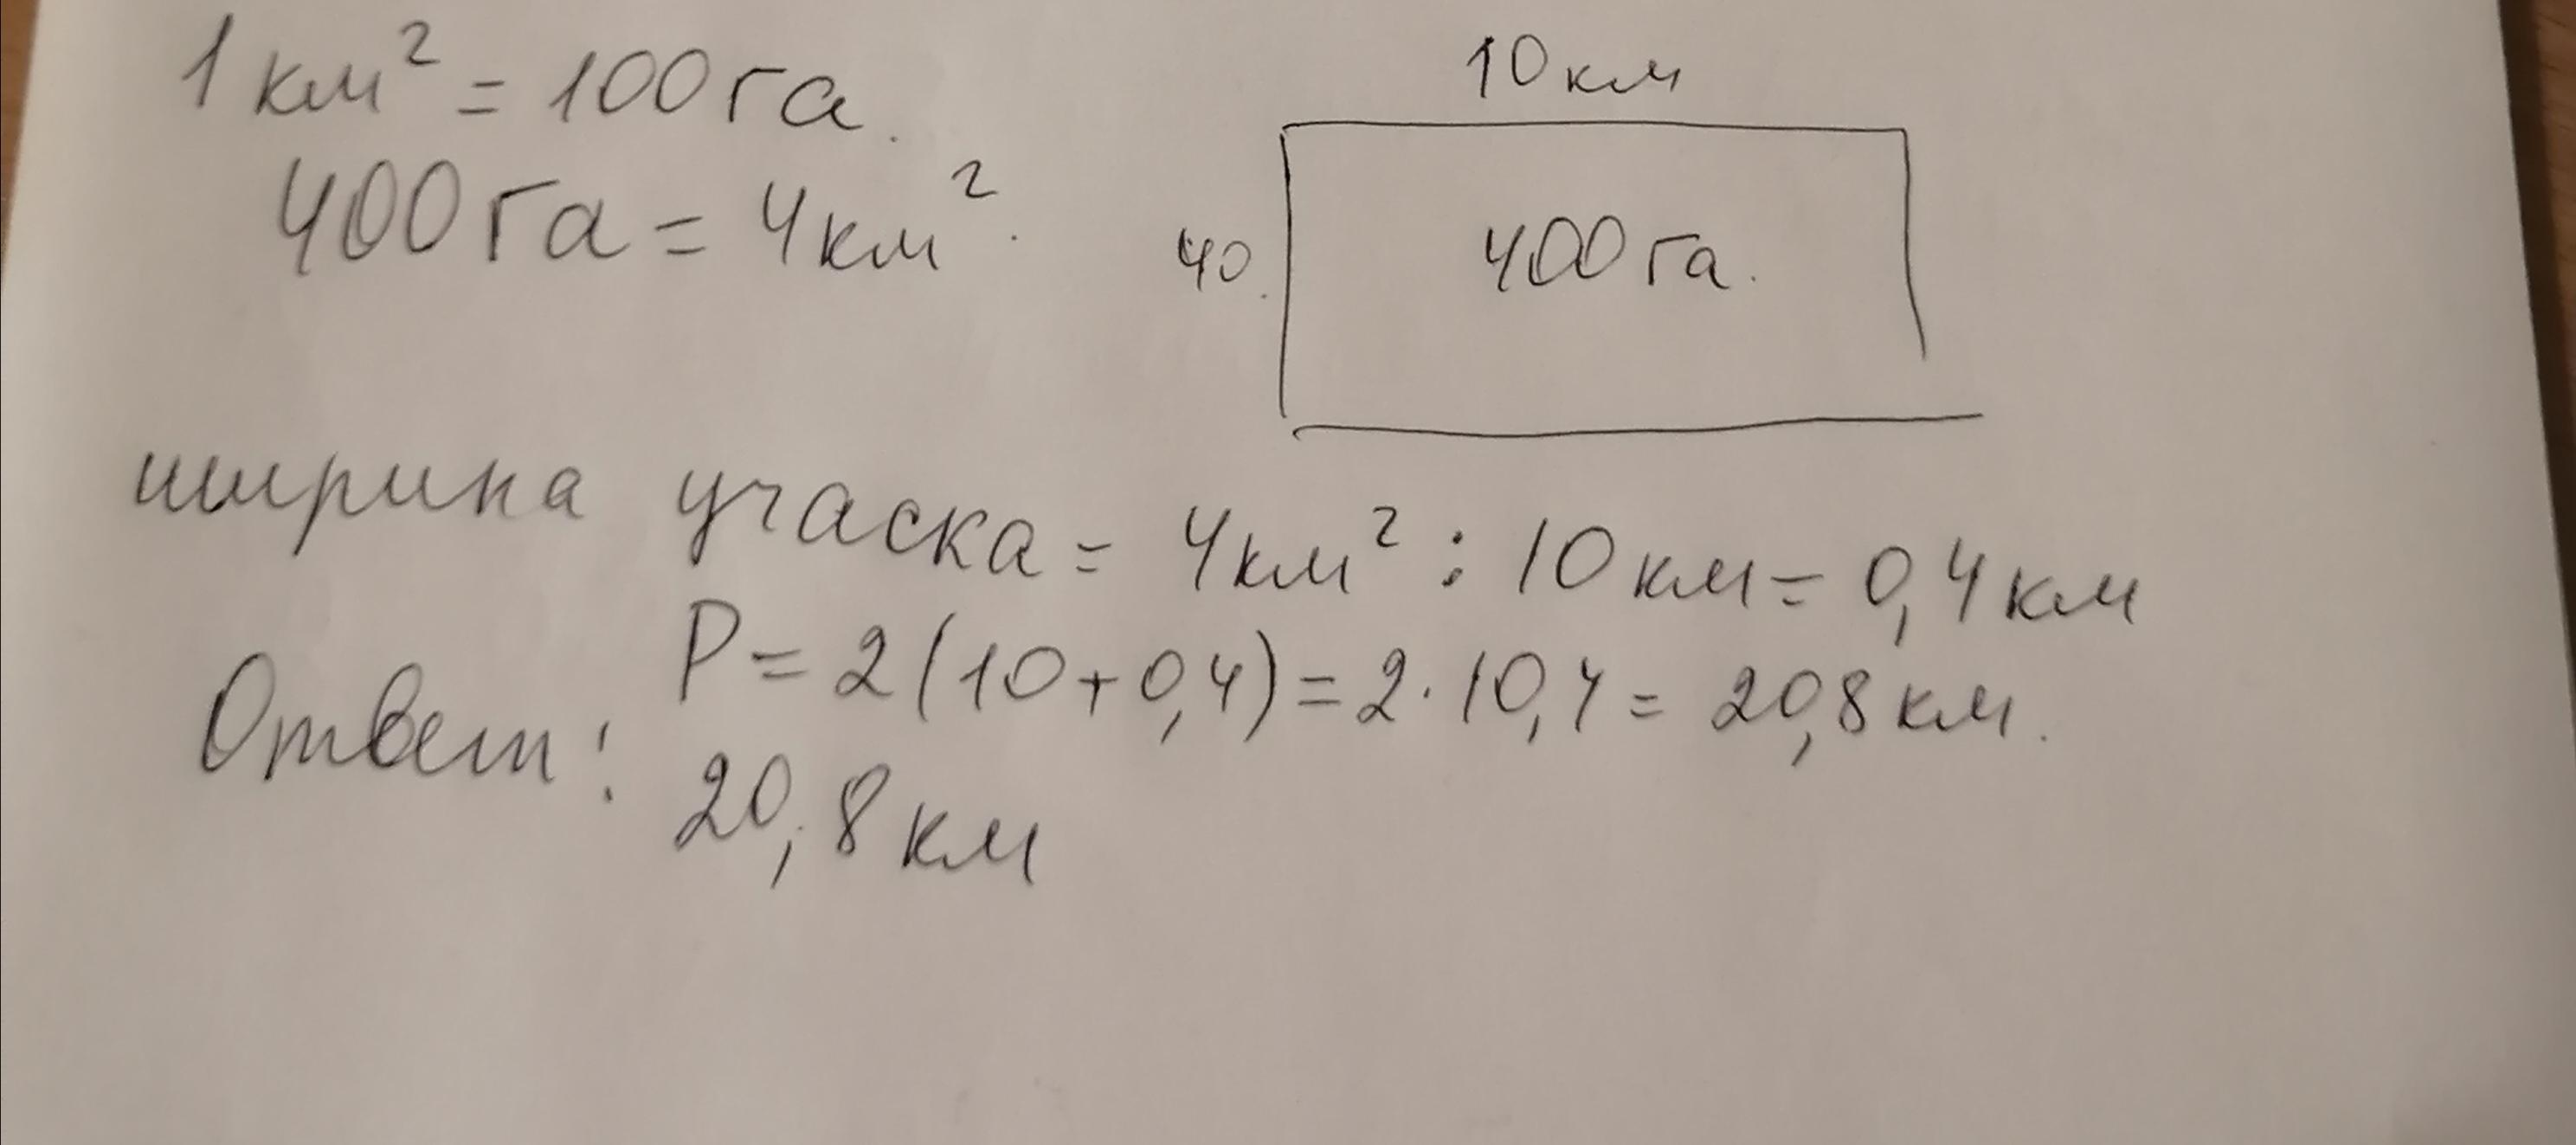 1 км² = 100 га.
400 га = 4 км².
10 км
40.
400 га.
ширина учаска = 4 км² : 10 км = 0,4 км
P = 2(10+0,4) = 2·10,4 = 20,8 км.
Ответ: 20,8 км